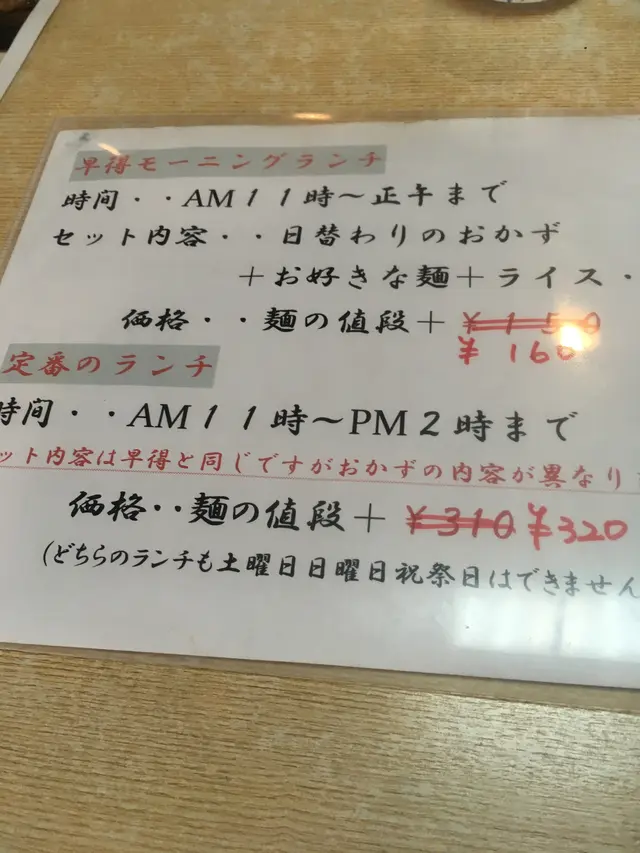 早得モーニングランチ
時間・・AM11時～正午まで
セット内容・・日替わりのおかず
＋お好きな麺＋ライス・
価格・・麺の値段＋ ¥150
¥160
定番のランチ
時間・・AM11時～PM2時まで
ット内容は早得と同じですがおかずの内容が異なり
価格・・麺の値段＋ ¥310 ¥320
(どちらのランチも土曜日日曜日祝祭日はできません